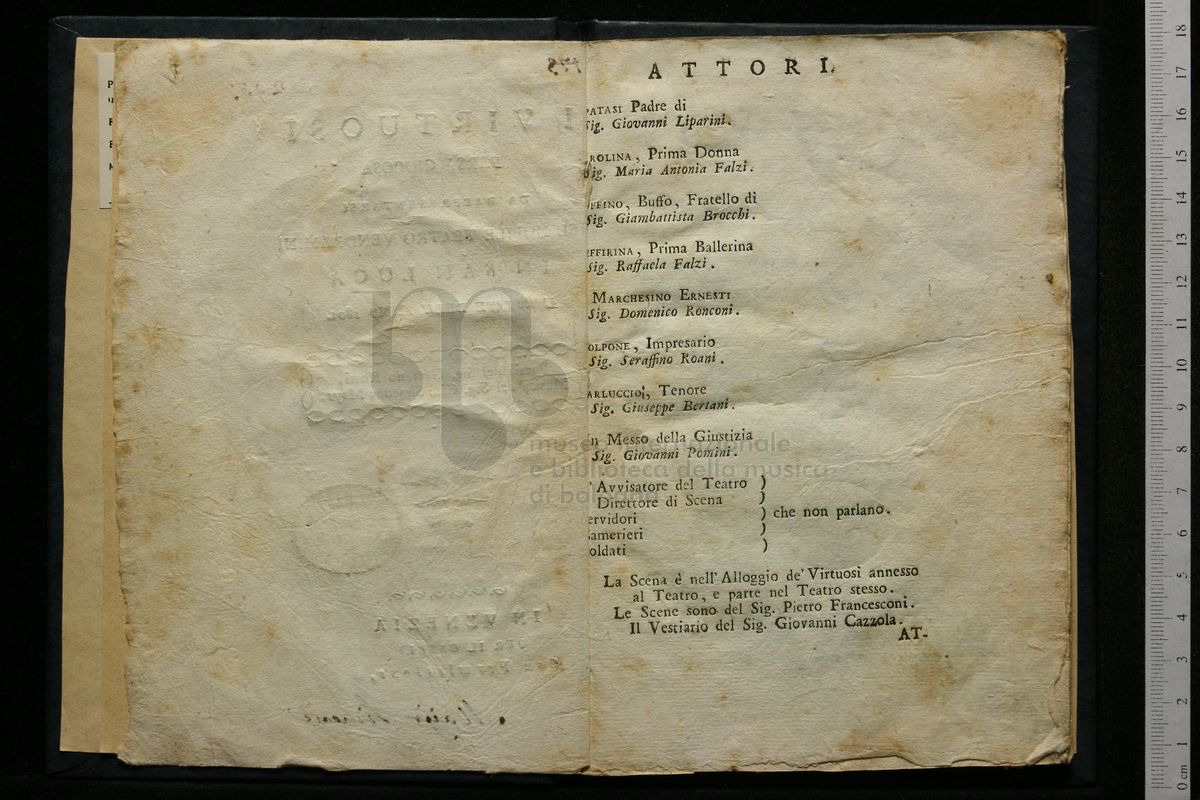 ATTORI.
PATASI Padre di
Sig. Giovanni Liparini.
ROLINA, Prima Donna
Sig. Maria Antonia Falzi.
FFINO, Buffo, Fratello di
Sig. Giambattista Brocchi.
EFFIRINA, Prima Ballerina
Sig. Raffaela Falzi.
MARCHESINO ERNESTI
Sig. Domenico Ronconi.
OLPONE, Impresario
Sig. Seraffino Roani.
ARLUCCIO, Tenore
Sig. Giuseppe Bertani.
un Messo della Giustizia
Sig. Giovanni Pomini.
' Avvisatore del Teatro )
Direttore di Scena )
ervidori ) che non parlano.
amerieri )
oldati )
La Scena è nell' Alloggio de' Virtuosi annesso
al Teatro, e parte nel Teatro stesso.
Le Scene sono del Sig. Pietro Francesconi.
Il Vestiario del Sig. Giovanni Cazzola.
AT-
I VIRTUOSI
SAN LUCA
IN VENEZIA
museo internazionale
e biblioteca della musica
di bologna
0 cm 1 2 3 4 5 6 7 8 9 10 11 12 13 14 15 16 17 18